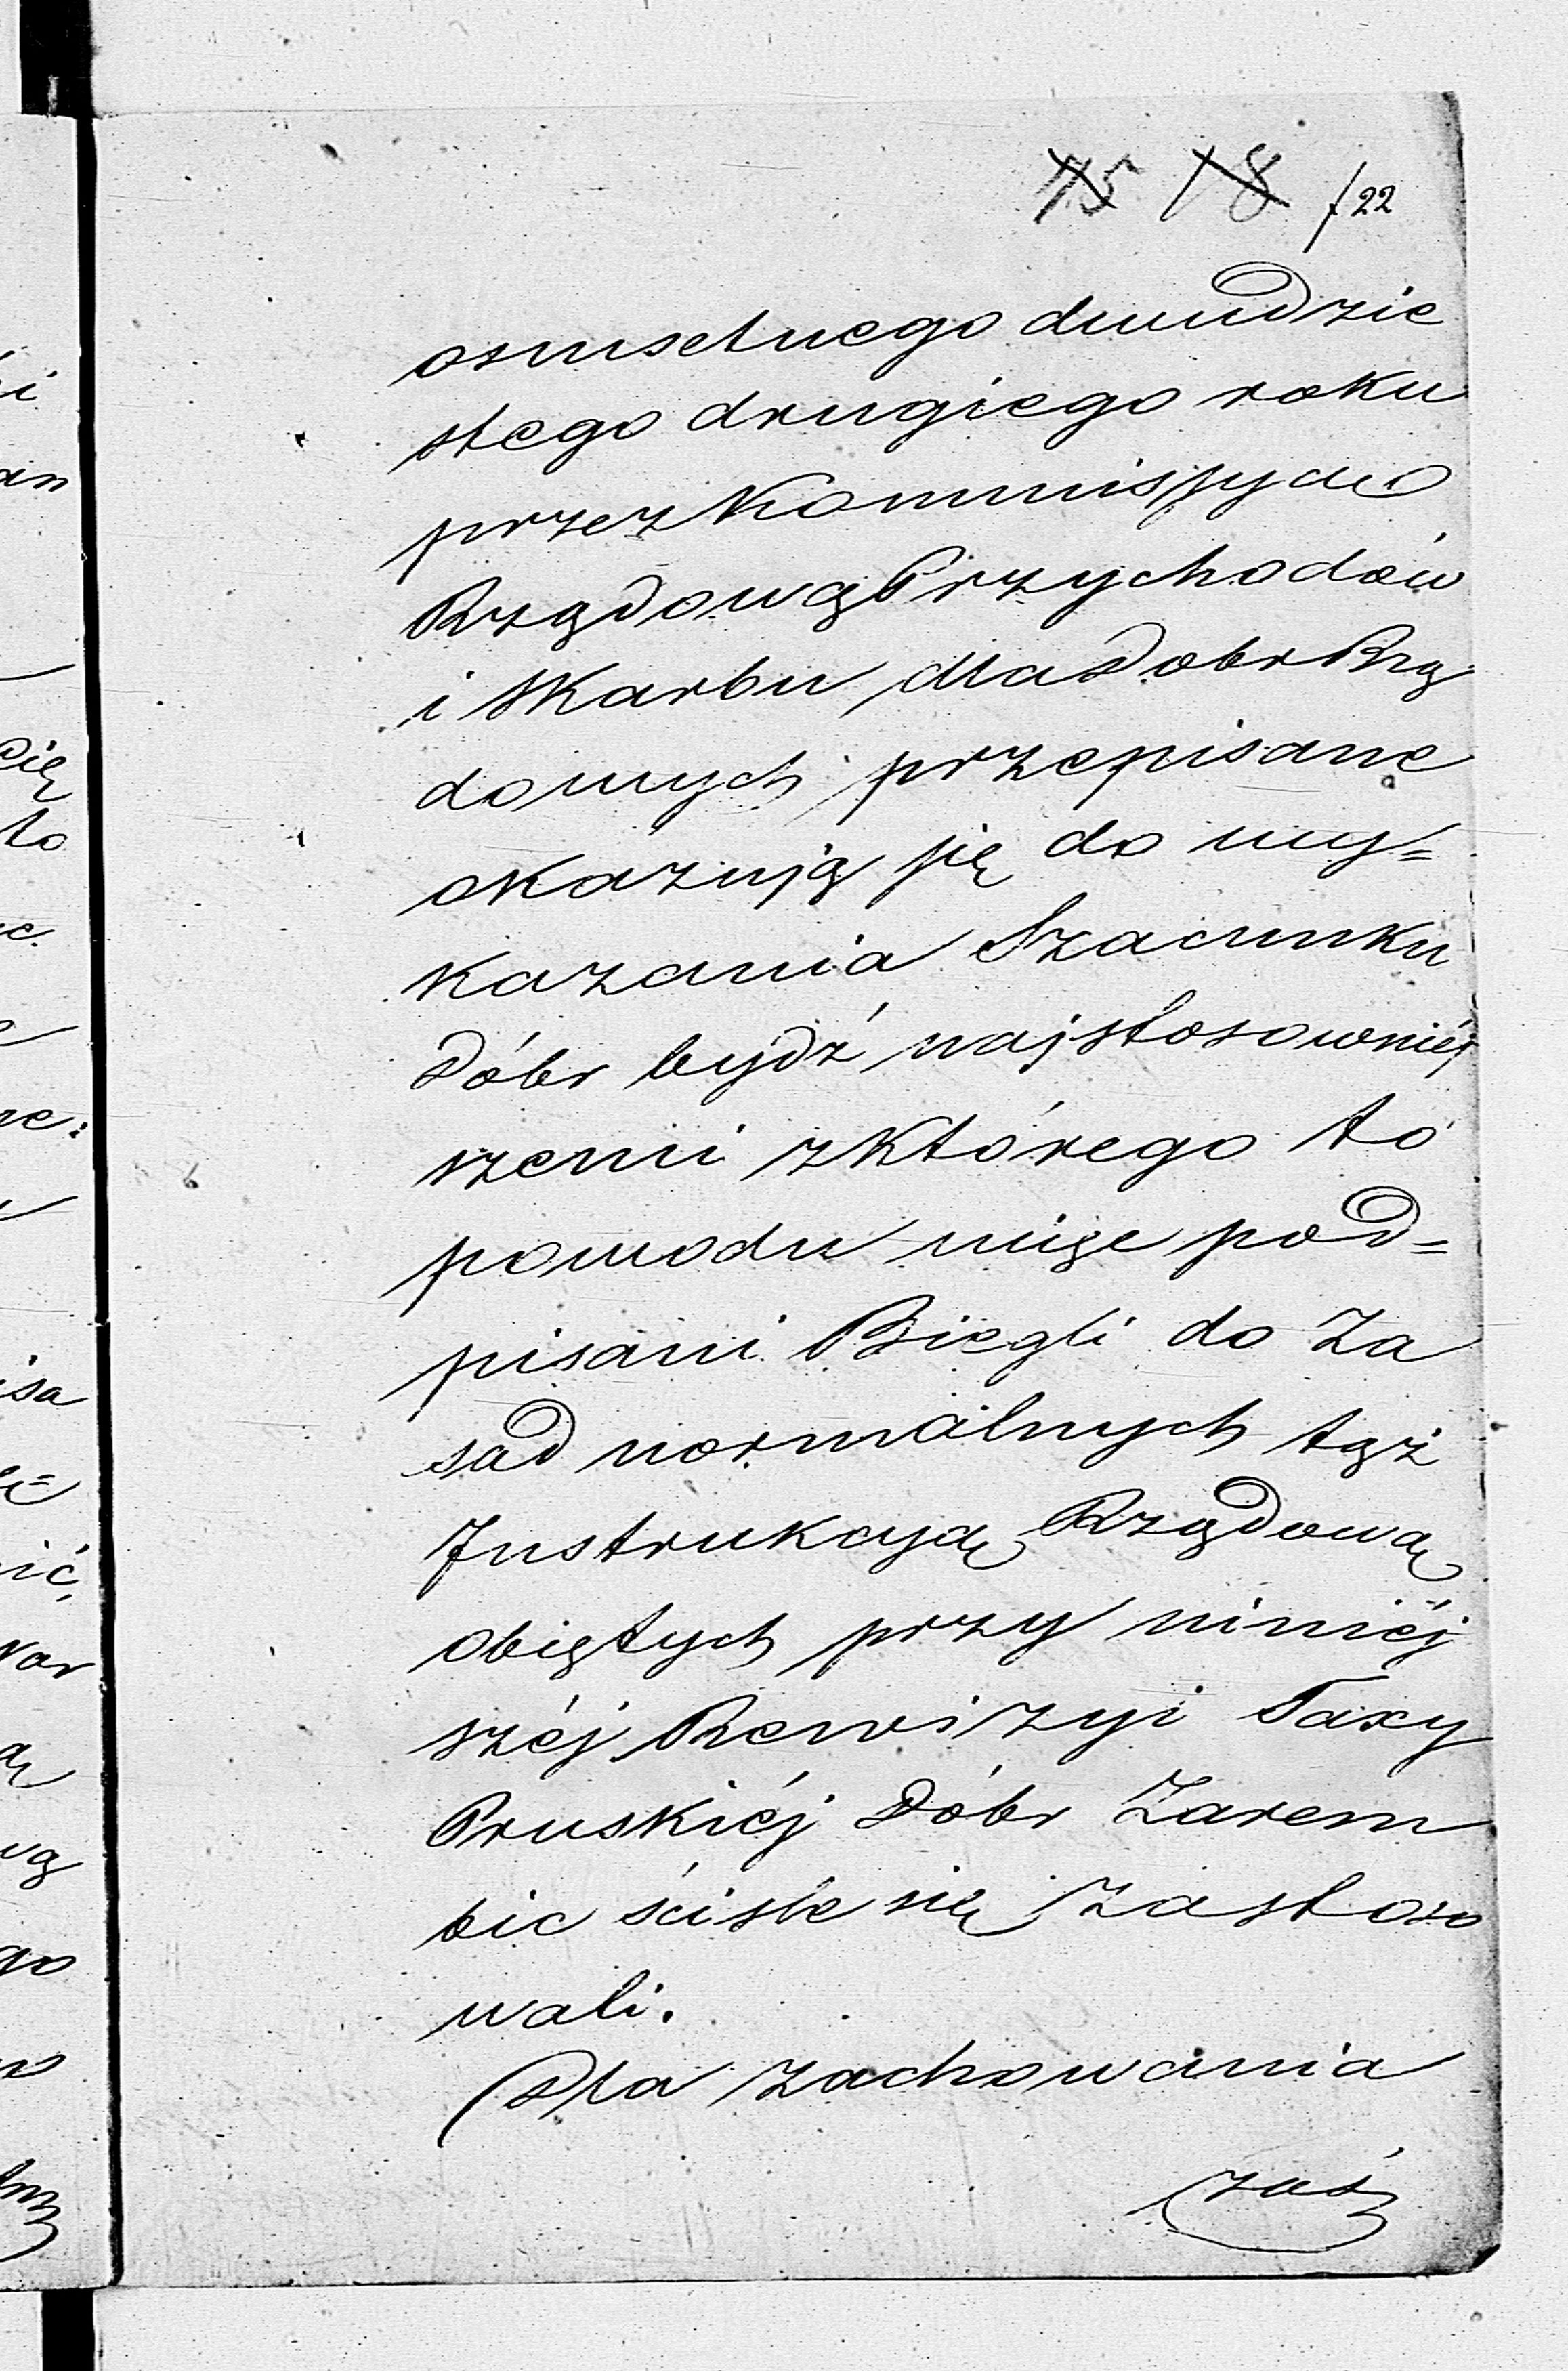 75 18 /22
osmsetnego dwudzie
stego drugiego roku
przez Kommissyą
Rządową Przychodów
i Skarbu dla Dobr Rzą
dowych przepisane
okazują się do wy=
kazania Szacunku
Dóbr bydź najstosowniéj
szemi z którego to
powodu niżej pod=
pisani Biegli do Za
sad normalnych tąż
Instrukcyą Rządową
obiętych przy niniéj
széj Rewizyi Taxy
Pruskiéj Dóbr Zarem
bic ściśle się zastoso
wali.
Dla zachowania
zaś